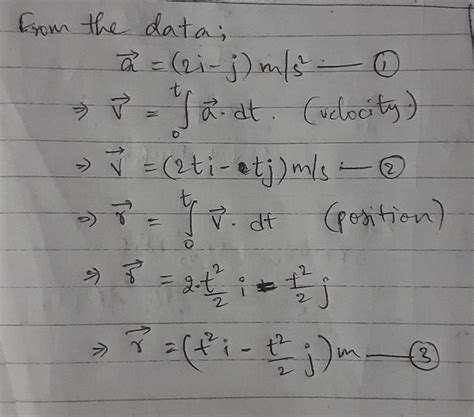 From the data;
a⃗ = (2i - j) m/s² — ①
⇒ v⃗ = ∫₀ᵗ a⃗. dt. (velocity.)
⇒ v⃗ = (2ti - tj) m/s — ②
⇒ r⃗ = ∫₀ᵗ v⃗. dt (position)
⇒ r⃗ = 2.t²/2 i - t²/2 j
⇒ r⃗ = (t² i - t²/2 j) m — ③